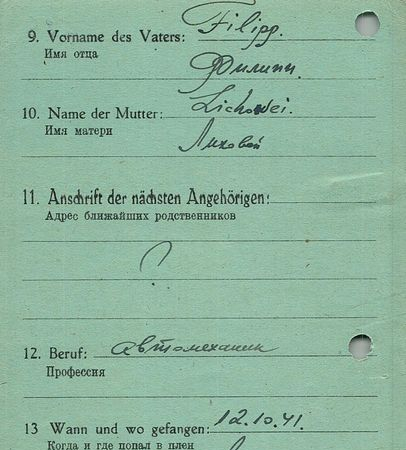 9. Vorname des Vaters: Filipp.
Имя отца
Филипп.
10. Name der Mutter: Lichowei.
Имя матери
Лиховей
11. Anschrift der nächsten Angehörigen:
Адрес ближайших родственников
12. Beruf: автомеханик
Профессия
13 Wann und wo gefangen: 12.10.41.
Когда и где попал в плен